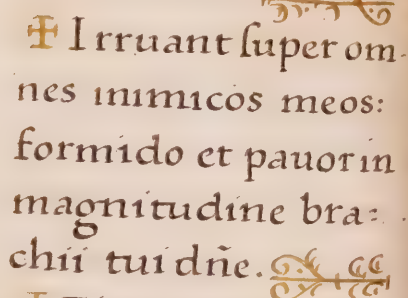 ✠ Irruant ſuper om-
nes inimicos meos:
formido et pauor in
magnitudine bra:
chii tui dñe.